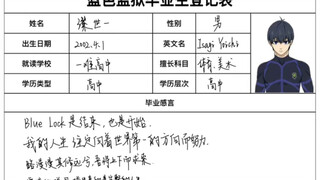 蓝色监狱毕业生登记表
姓名 潔世一 性别 男
出生日期 2002.4.1 英文名 Isagi Yoichi
就读学校 一难高中 擅长科目 体育.美术
学历类型 高中 学历层次 高中
毕业感言
Blue Lock是结束，也是开始
我的人生 该向着世界第一的方向而努力
路漫漫其修远兮，吾将上下而求索